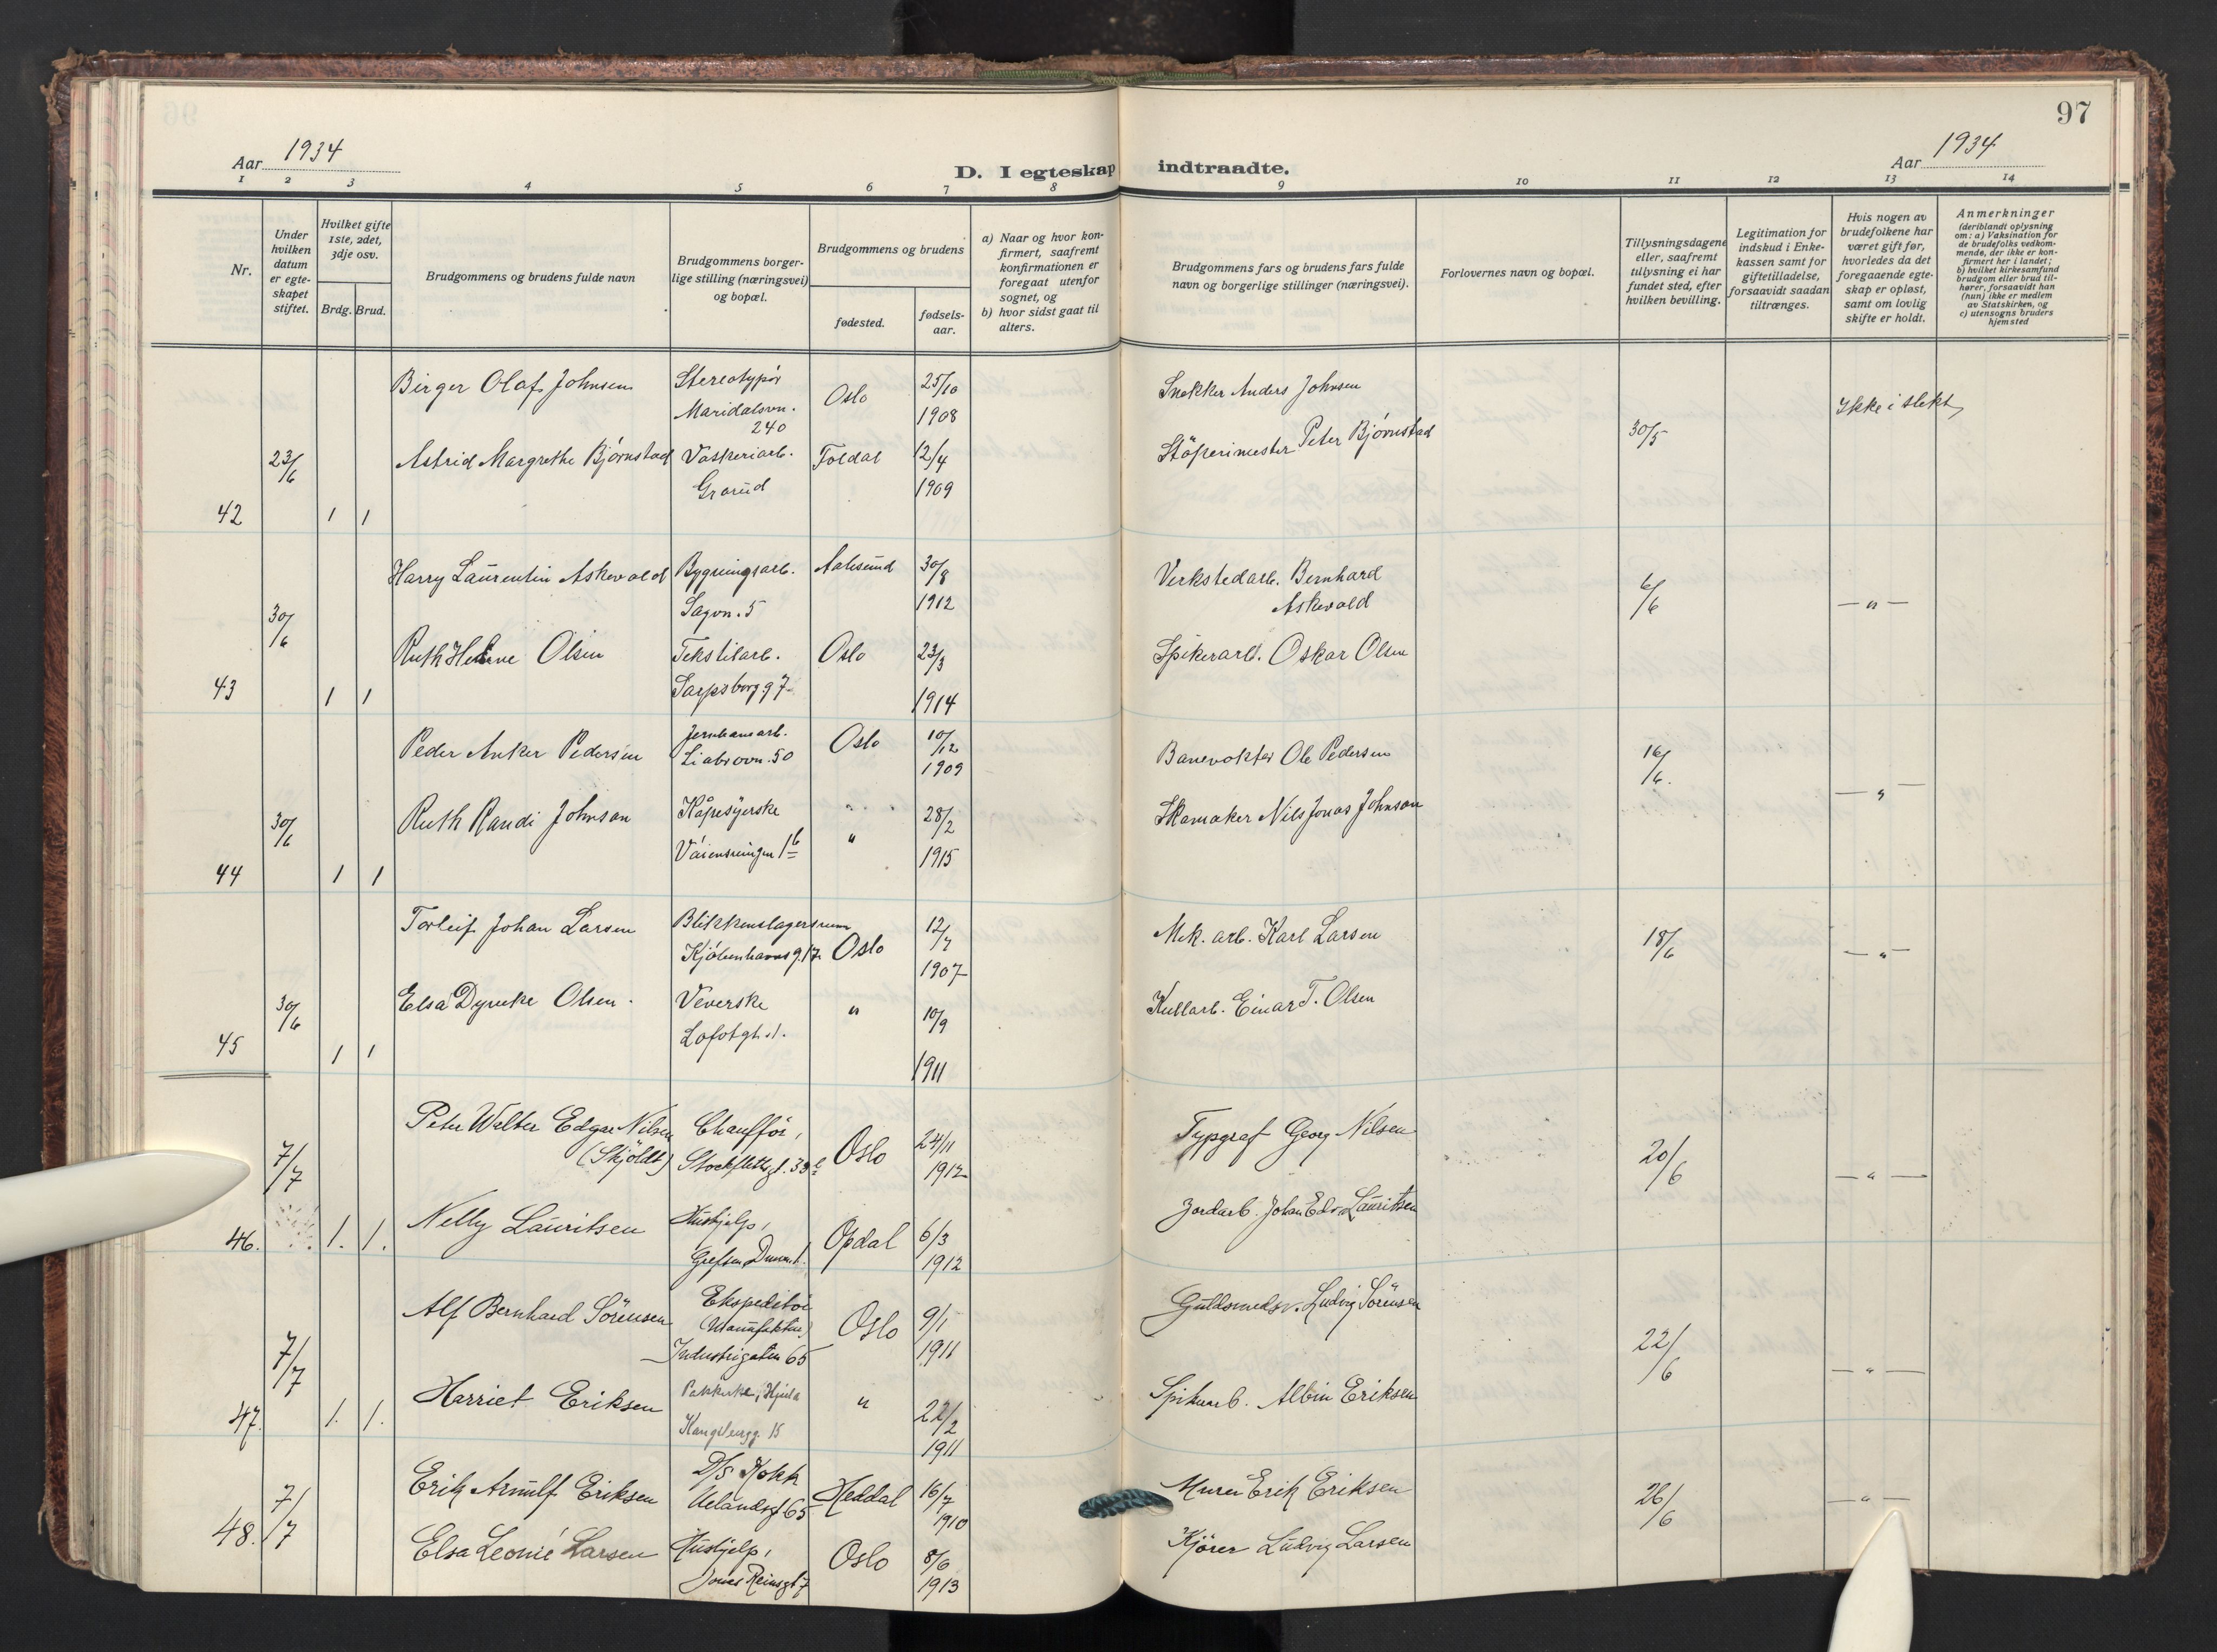 97
Aar 1934
D. I egteskap indtraadte.
Aar 1934
1 2 3 4 5 6 7 8 9 10 11 12 13 14
Nr.
Under
hvilken
datum
er egte-
skapet
stiftet.
Hvilket gifte
1ste, 2det,
3dje osv.
Brdg. Brud.
Brudgommens og brudens fulde navn
Brudgommens borger-
lige stilling (næringsvei)
og bopæl.
Brudgommens og brudens
fødested.
fødsels-
aar.
a) Naar og hvor kon-
firmert, saafremt
konfirmationen er
foregaat utenfor
sognet, og
b) hvor sidst gaat til
alters.
Brudgommens fars og brudens fars fulde
navn og borgerlige stillinger (næringsvei).
Forlovernes navn og bopæl.
Tillysningsdagene
eller, saafremt
tillysning ei har
fundet sted, efter
hvilken bevilling.
Legitimation for
indskud i Enke-
kassen samt for
giftetilladelse,
forsaavidt saadan
tiltrænges.
Hvis nogen av
brudefolkene har
været gift før,
hvorledes da det
foregaaende egte-
skap er opløst,
samt om lovlig
skifte er holdt.
Anmerkninger
(deriblandt oplysning
om: a) Vaksination for
de brudefolks vedkom-
mende, der ikke er kon-
firmert her i landet;
b) hvilket kirkesamfund
brudgom eller brud til-
hører, forsaavidt han
(hun) ikke er medlem
av Statskirken, og
c) utensogns bruders
hjemsted
Birger Olaf Johnsen Stereotypör Oslo 25/10 Snekker Anders Johnsen
Maridalsvn. 1908 Ikke i slekt
240
23/6 Astrid Margrethe Bjørnstad Vaskeriarb. Foldal 12/4 Støperimester Peter Bjørnstad 30/5
Grorud 1909
42 1 1
Harry Laurentin Askevold Bygningsarb. Aalesund 30/8 Verkstedarb. Bernhard 6/6
Sagvn. 5 1912 Askevold — " —
30/6 Ruth Helene Olsen Tekstilarb. Oslo 23/3 Spikerarb. Oskar Olsen
Sarpsborgg 7 1914
43 1 1
Peder Anker Pedersen Jernbanearb. Oslo 10/12 Banevokter Ole Pedersen 16/6.
Liabrovn. 50 1909
30/6 Ruth Randi Johnson Kåpesyerske " 28/2 Skomaker Nils Jonas Johnson — " —
1b " 1915
44 1 1
Torleif Johan Larsen Blikkenslagersvenn 12/7 Mek. arb. Karl Larsen 18/6
Kjøbenhavnsg. 17 Oslo 1907 — " —
30/6 Elsa Dyveke Olsen. Veverske " 10/9 Kullarb. Einar T. Olsen
Lofotgt. 1. 1911
45 1 1
Peter Walter Edgar Nilsen Chaufför, Oslo 24/11 Typograf Georg Nilsen 20/6
7/7 (Skjöldt) Stockflethsgt. 1912 — " —
46. 1. 1. Nelly Lauritsen Hushjelp, Opdal 6/3 Jordarb. Johan Edv. Lauritsen
Grefsen 1912
Alf Bernhard Sörensen Ekspeditör Oslo 9/1 Guldsmedsv. Ludvig Sörensen
7/7 (Manufaktur) 22/6
Industrigaten 65 1911 — " —
47. 1. 1. Harriet Eriksen Pakkerske, Hjula " 22/2 Spikerarb. Albin Eriksen
15 1911
Erik Arnulf Eriksen D/S Kokk Heddal 16/7 Murer Erik Eriksen 26/6 — " —
48. 7/7 Uelandsgt 65 1910
Elsa Leonie Larsen Hushjelp, Oslo 8/6 Kjører Ludvig Larsen
Jones Reinsgt 7 1913